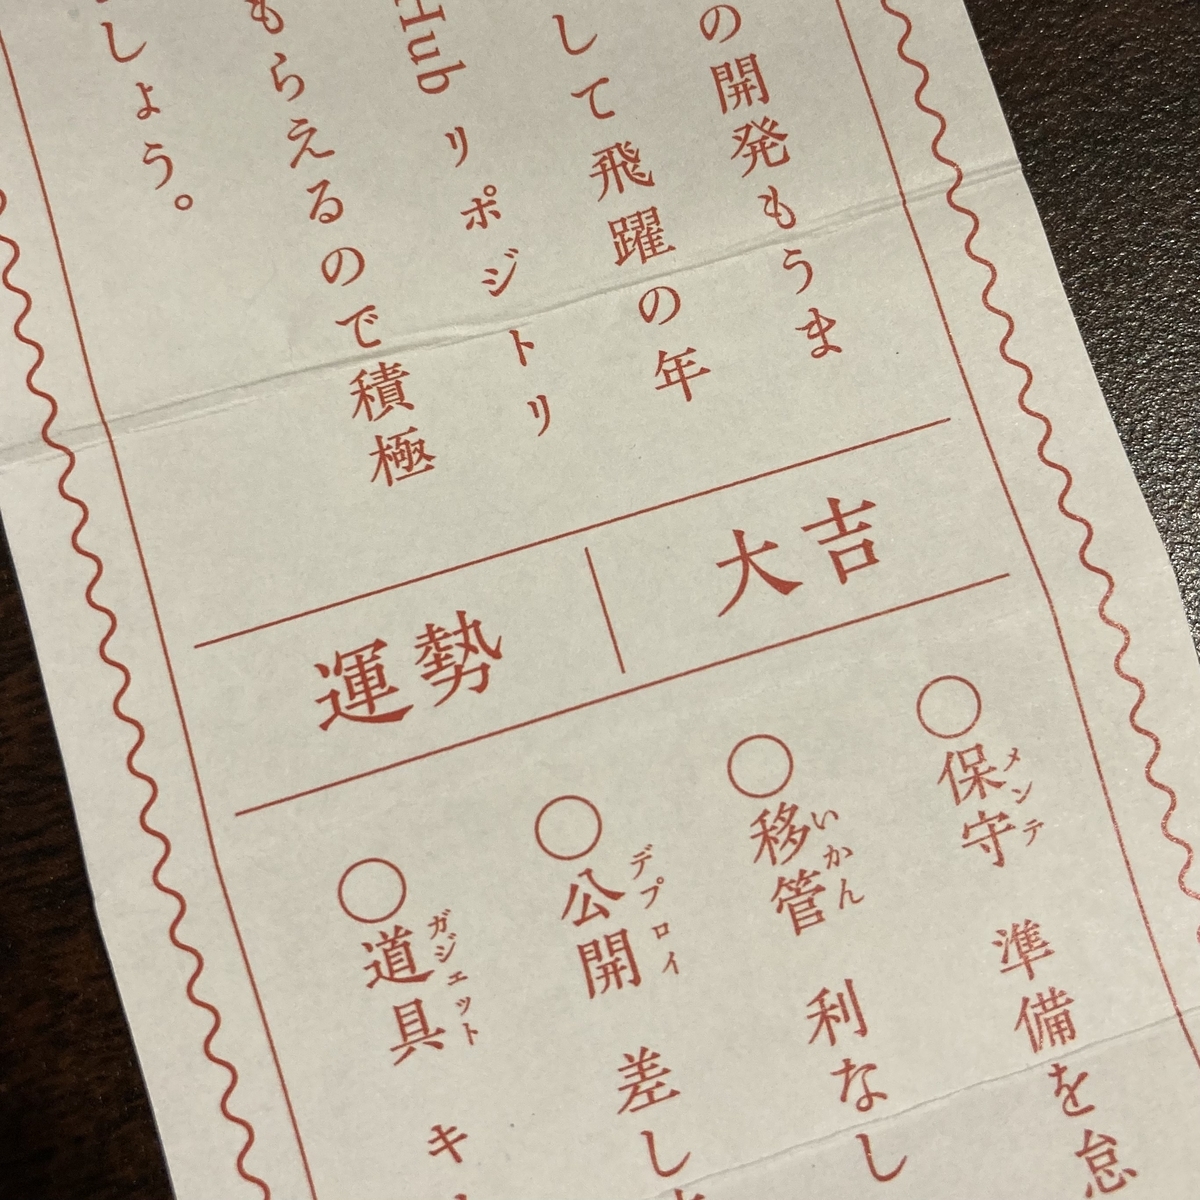 の開発もうま
して飛躍の年
Hub リポジトリ
もらえるので積極
しょう。
運勢
大吉
○保守 準備を怠
メンテ
○移管 利なし
いかん
○公開 差し
デプロイ
○道具 キ
ガジェット